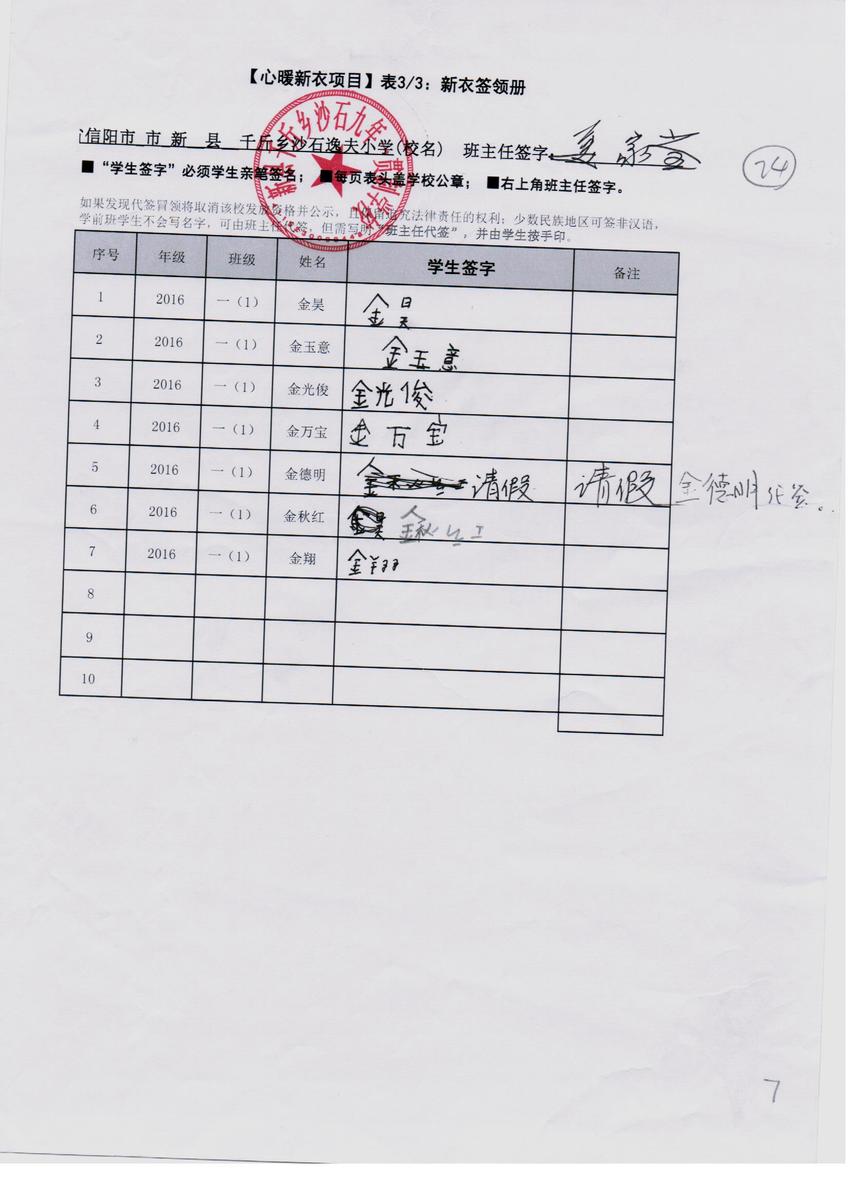 【心暖新衣项目】表3/3：新衣签领册
信阳市 市 新 县 千斤乡沙石逸夫小学(校名) 班主任签字
24
■ “学生签字”必须学生亲笔签名； ■每页表头盖学校公章； ■右上角班主任签字。
如果发现代签冒领将取消该校发放资格并公示，且保留追究法律责任的权利；少数民族地区可签非汉语，
学前班学生不会写名字，可由班主任代签，但需写明“班主任代签”，并由学生按手印。
新县千斤乡沙石九年一贯制学校
序号 年级 班级 姓名 学生签字 备注
1 2016 一（1） 金昊 金昊
2 2016 一（1） 金玉意 金玉意
3 2016 一（1） 金光俊 金光俊
4 2016 一（1） 金万宝 金万宝
5 2016 一（1） 金德明 请假 请假 金德明代签。
6 2016 一（1） 金秋红 金秋红
7 2016 一（1） 金翔 金翔
8
9
10
7